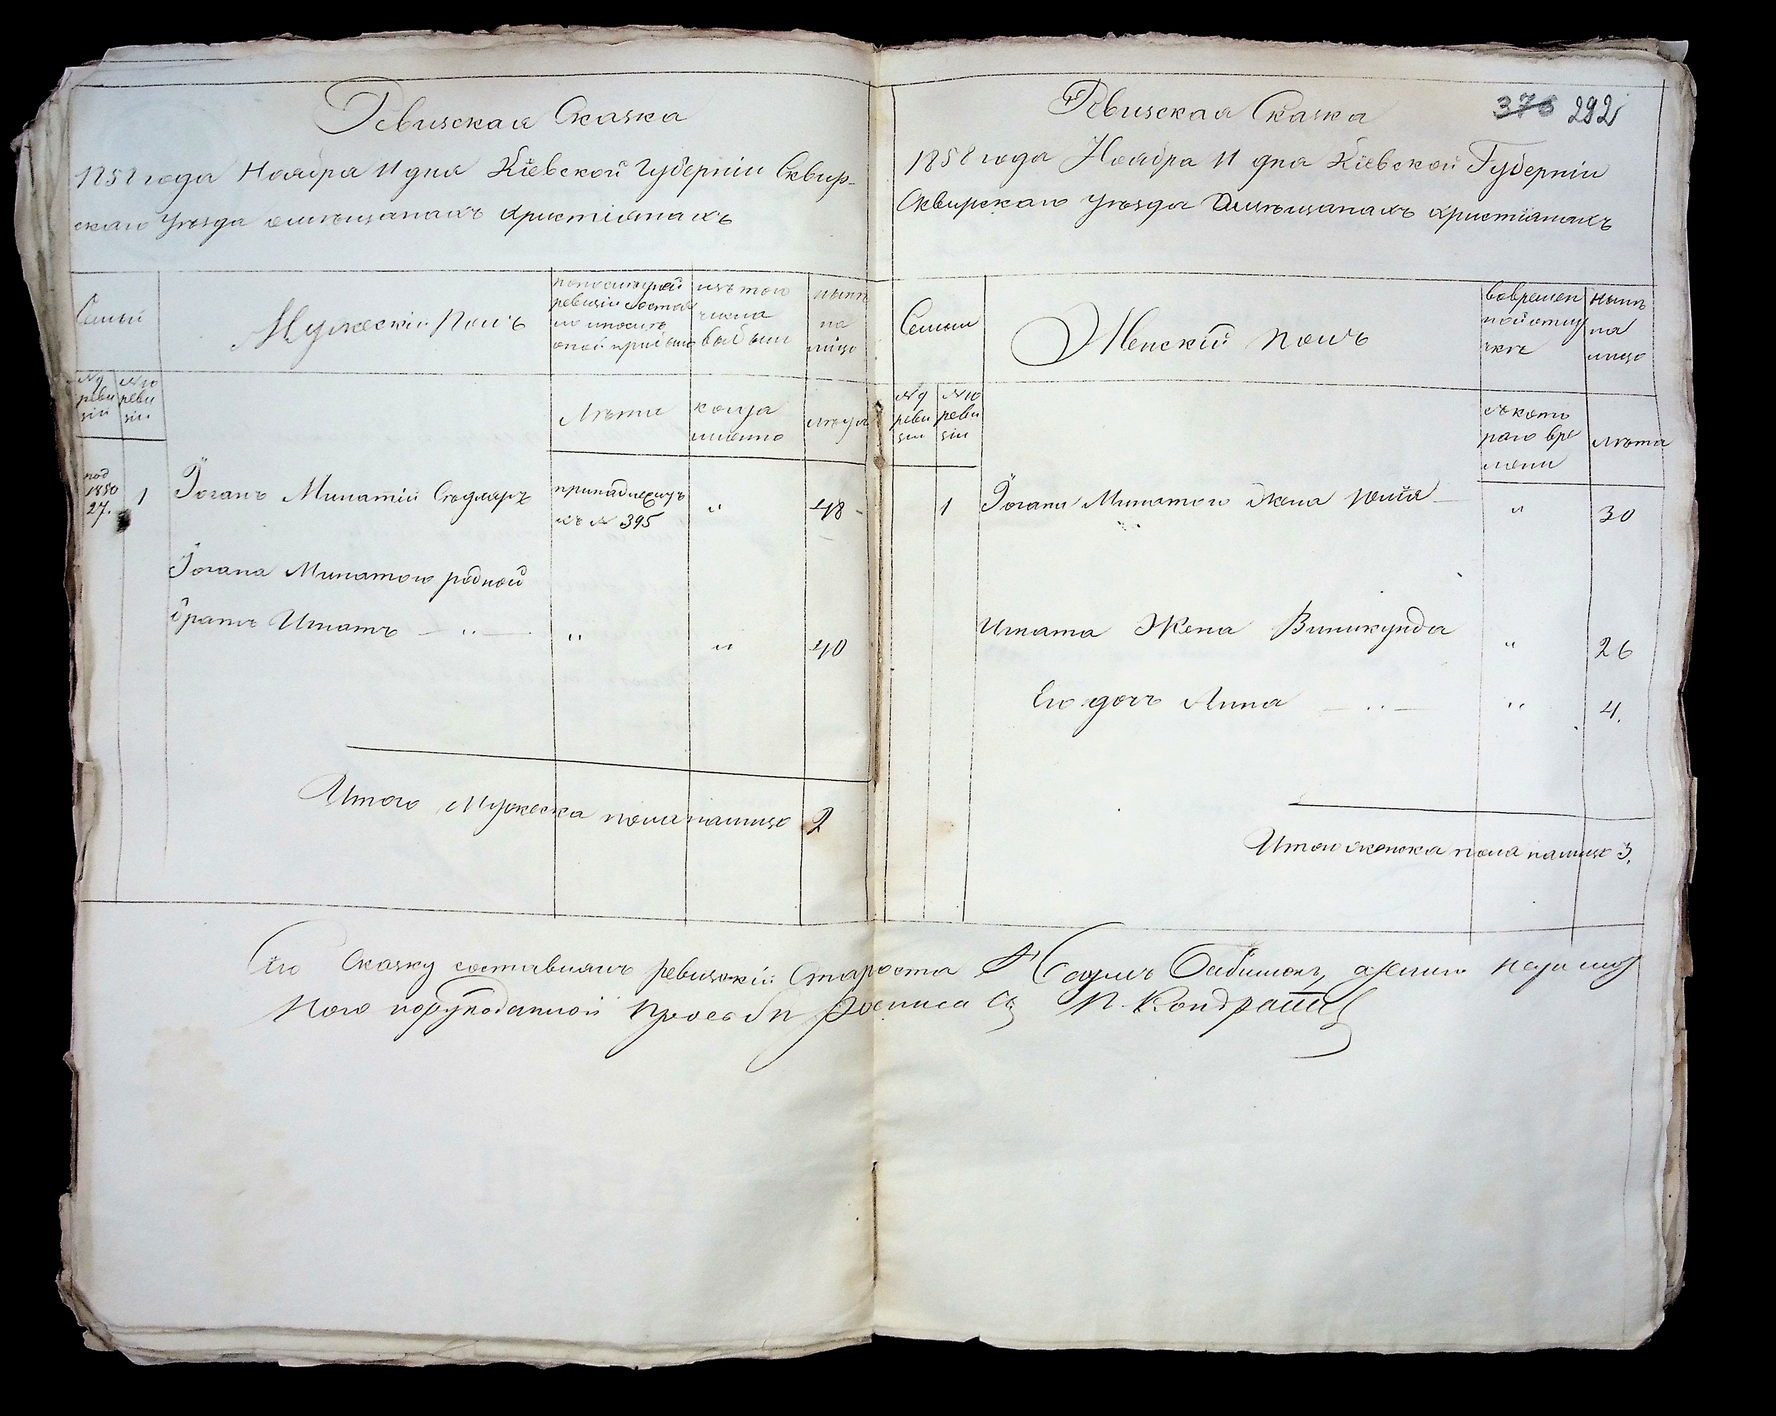 Ревизская Сказка
1858 года Ноября 11 дня Кіевской Губерніи Сквир-
скаго Уѣзда о мѣщанахъ христіянахъ
Семьи
Мужескій Полъ
по послѣдней
ревизіи состоя-
ло и послѣ
оной прибыло
изъ того
числа
выбыли
нынѣ
на
лицо
№ 9
реви
зіи
№ 10
реви
зіи
Лѣта
когда
именно
лѣта
под
1850
27.
1
Іоганъ Игнатій
принадлежитъ
къ № 395
"
48
Іогана Игнатого родной
братъ Игнатъ
"
"
40
Итого Мужеска пола налицо 2
Ревизская Сказка
376 292
1858 года Ноября 11 дня Кіевской Губерніи
Сквирскаго Уѣзда О мѣщанахъ христіанахъ
Семьи
Женскій полъ
во времен
ной отлу
чкѣ
нынѣ
на
лицо
№ 9
реви
зіи
№ 10
реви
зіи
съ кото
раго вре
мени
лѣта
1
Іогана Игнатого жена Юлія
"
30
Игната Жена Виникунда
"
26
Его дочь Анна
"
4.
Итого женска пола налицо 3.
Сію Сказку составлялъ ревизскій Староста
ного порукоданной Просьбы Росписался П. Кондрат